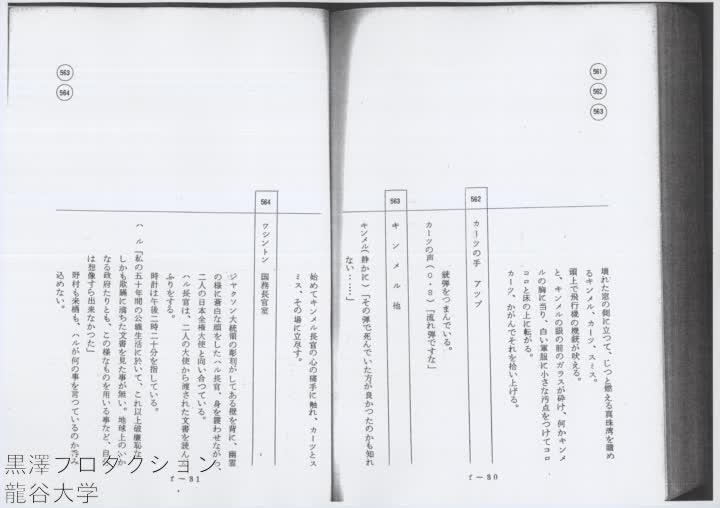 561
562
563
壊れた窓の側に立つて、じつと燃える真珠湾を眺め
るキンメル、カーツ、スミス。
頭上で飛行機の機銃が吠える。
と、キンメルの眼の前のガラスが砕け、何かキンメ
ルの胸に当り、白い軍服に小さな汚点をつけてコロ
コロと床の上に転がる。
カーツ、かがんでそれを拾い上げる。
562
カーツの手 アップ
銃弾をつまんでいる。
カーツの声(O・S)「流れ弾ですな」
563
キンメル他
キンメル(静かに)「その弾で死んでいた方が良かつたのかも知れ
ない……」
f-80
563
564
始めてキンメル長官の心の痛手に触れ、カーツとス
ミス、その場に立尽す。
564
ワシントン 国務長官室
ジャクソン大統領の彫刻がしてある壁を背に、幽霊
の様に蒼白な顔をしたハル長官、身を震わせながら、
二人の日本全権大使と向い合つている。
ハル長官は、二人の大使から渡された文書を読んだ
ふりをする。
時計は午後二時二十分を指している。
ハル「私の五十年間の公職生活に於いて、これ以上破廉恥な、
しかも欺瞞に満ちた文書を見た事が無い。地球上のいか
なる政府たりとも、この様なものを用いる事など、自分
は想像すら出来なかつた」
野村も来栖も、ハルが何の事を言つているのか呑み
込めない。
f-81
黒澤プロダクション
龍谷大学